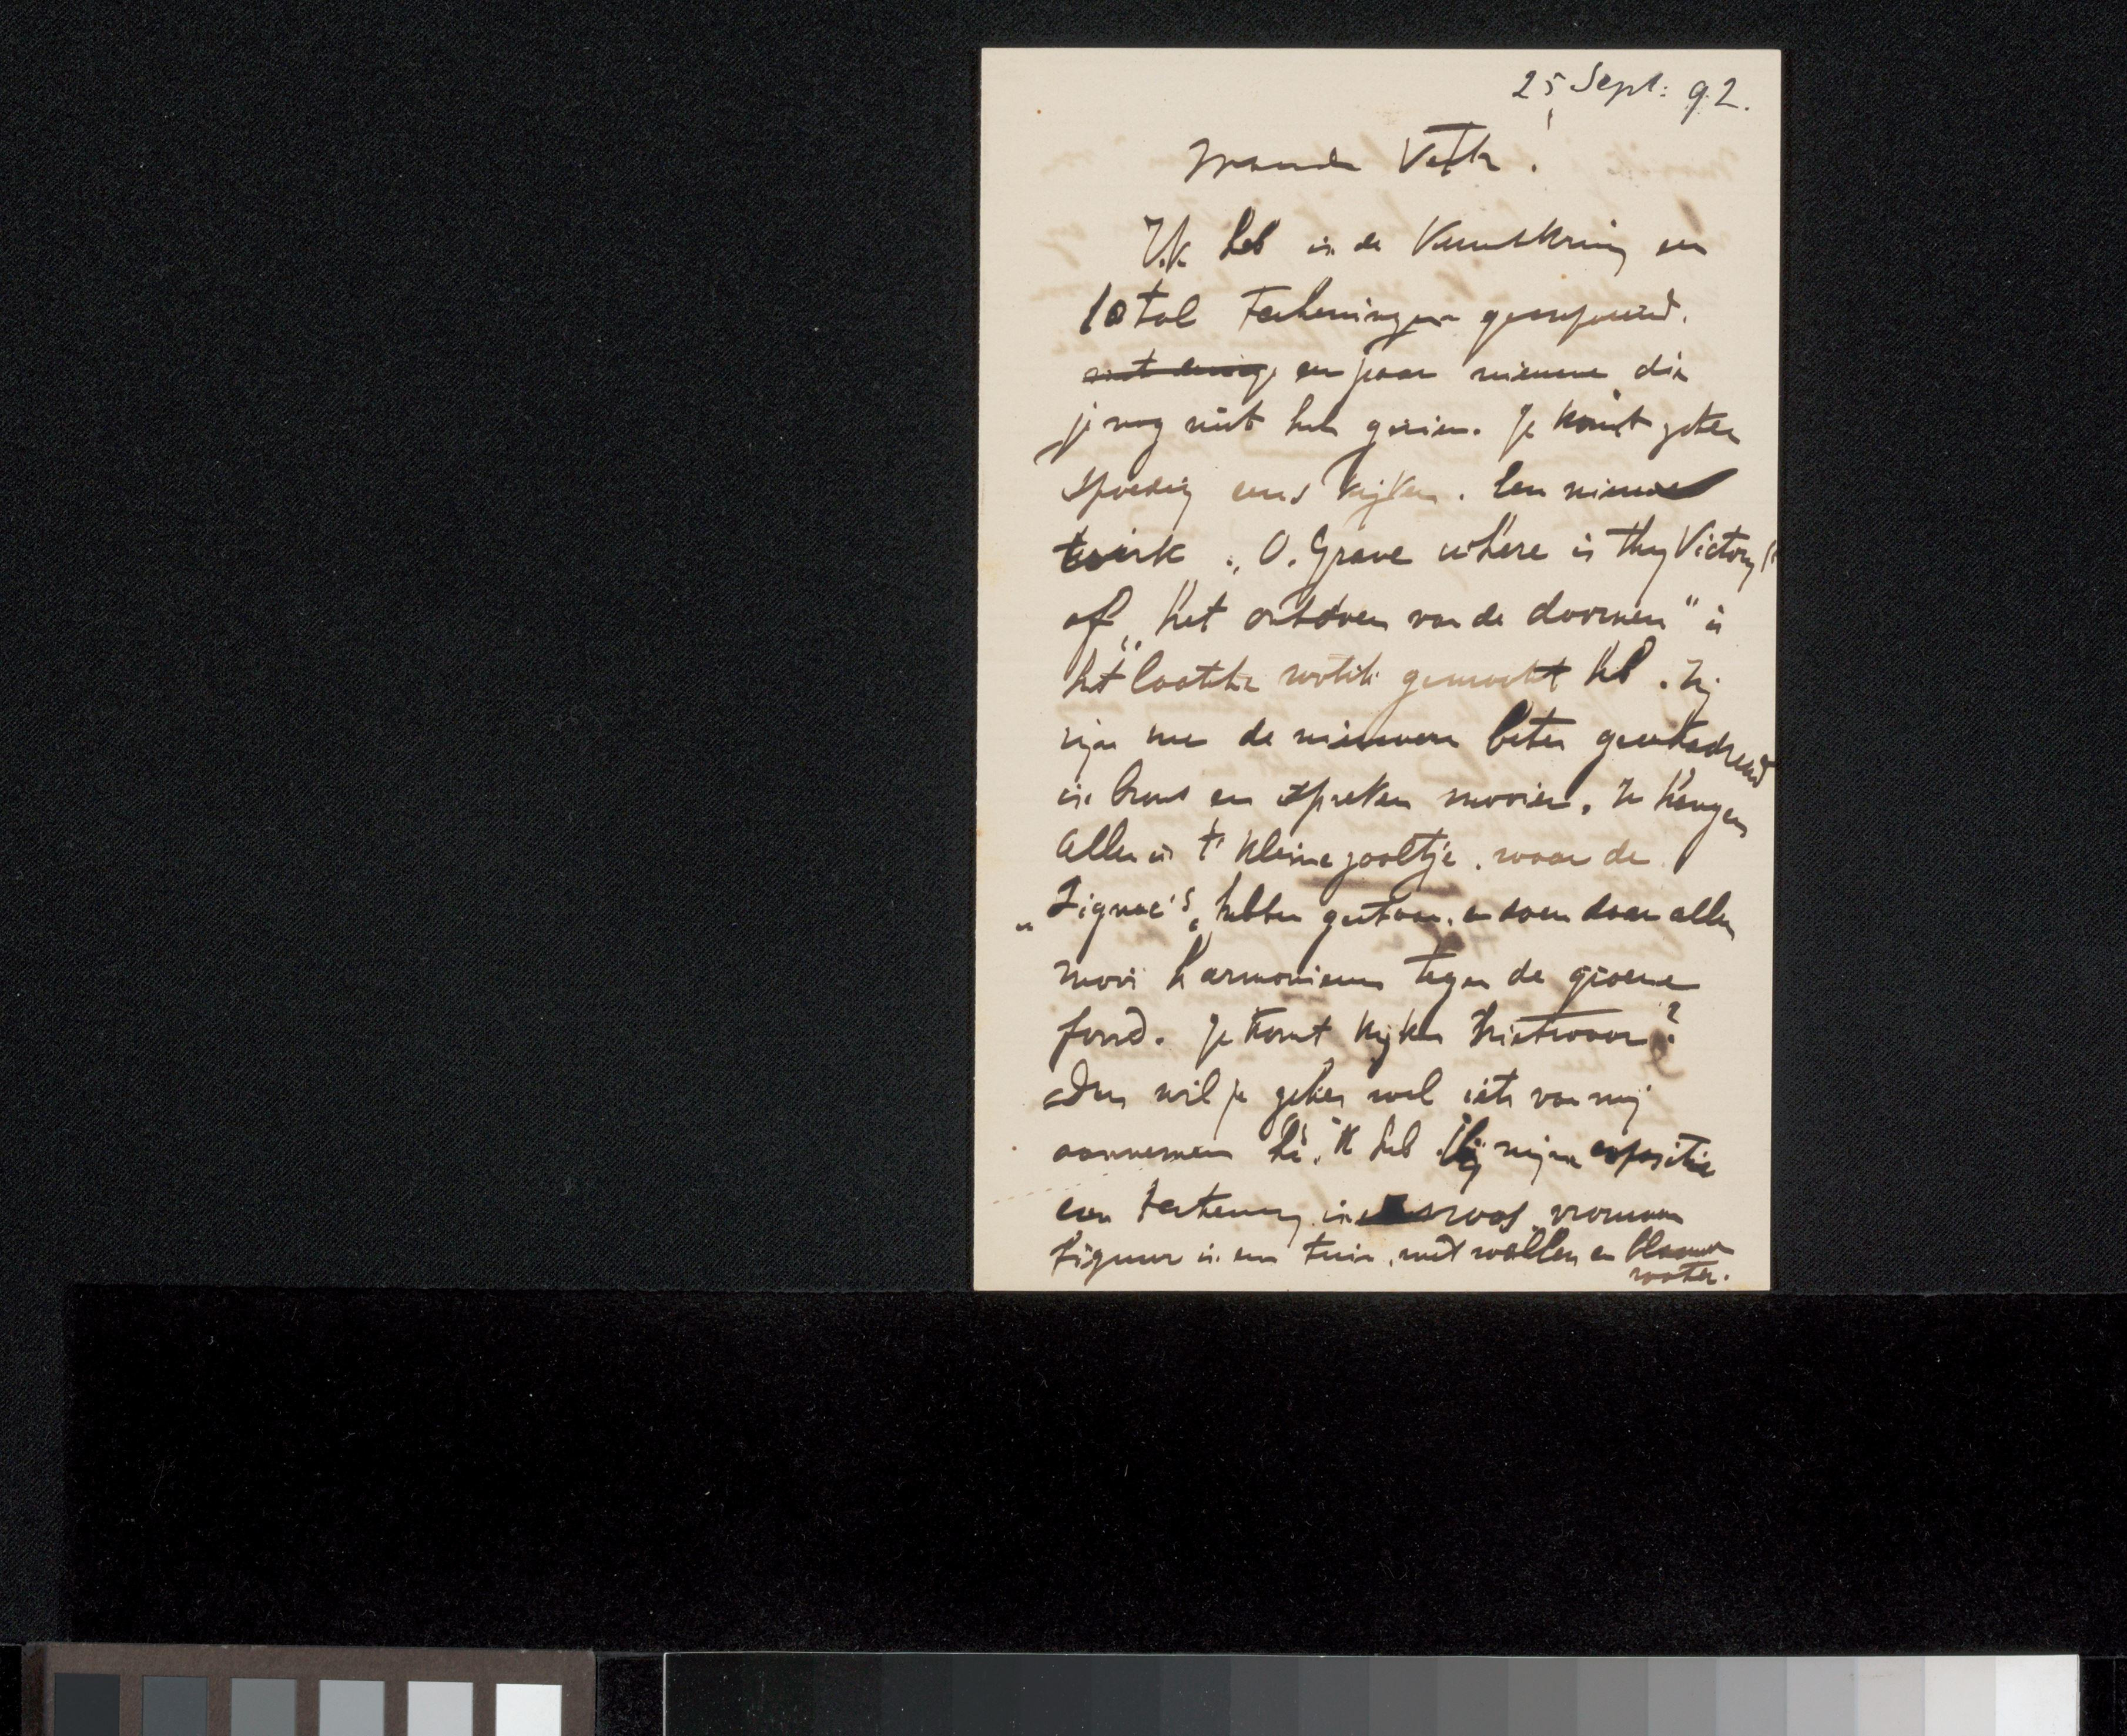 25 Sept: 92.
Waarde Veth.
Ik heb in de Kunstkring een
10 tal Teekeningen geexposeerd.
een paar nieuwe die
je nog niet heb gezien. Je komt zeker
spoedig eens kijken. Een nieuwe
werk „O. Grave where is thy Victory"
of „het ontdoen van de doornen" is
het laatste wat ik gemaakt heb. Zij
zijn me de nieuwere beter
in brons en spreken mooier. Ze hangen
allen in 't kleine zaaltje. waar de
„Signac's" hebben gestaan. en doen daar allen
mooi harmonieus tegen de groene
fond. Je komt kijken nietwaar?
dan wil je zeker wel iets van mij
aannemen hè. 'k heb bij mijn expositie
een teekening in roos vrouwen
figuur in een tuin, met wallen en blauwe
water.